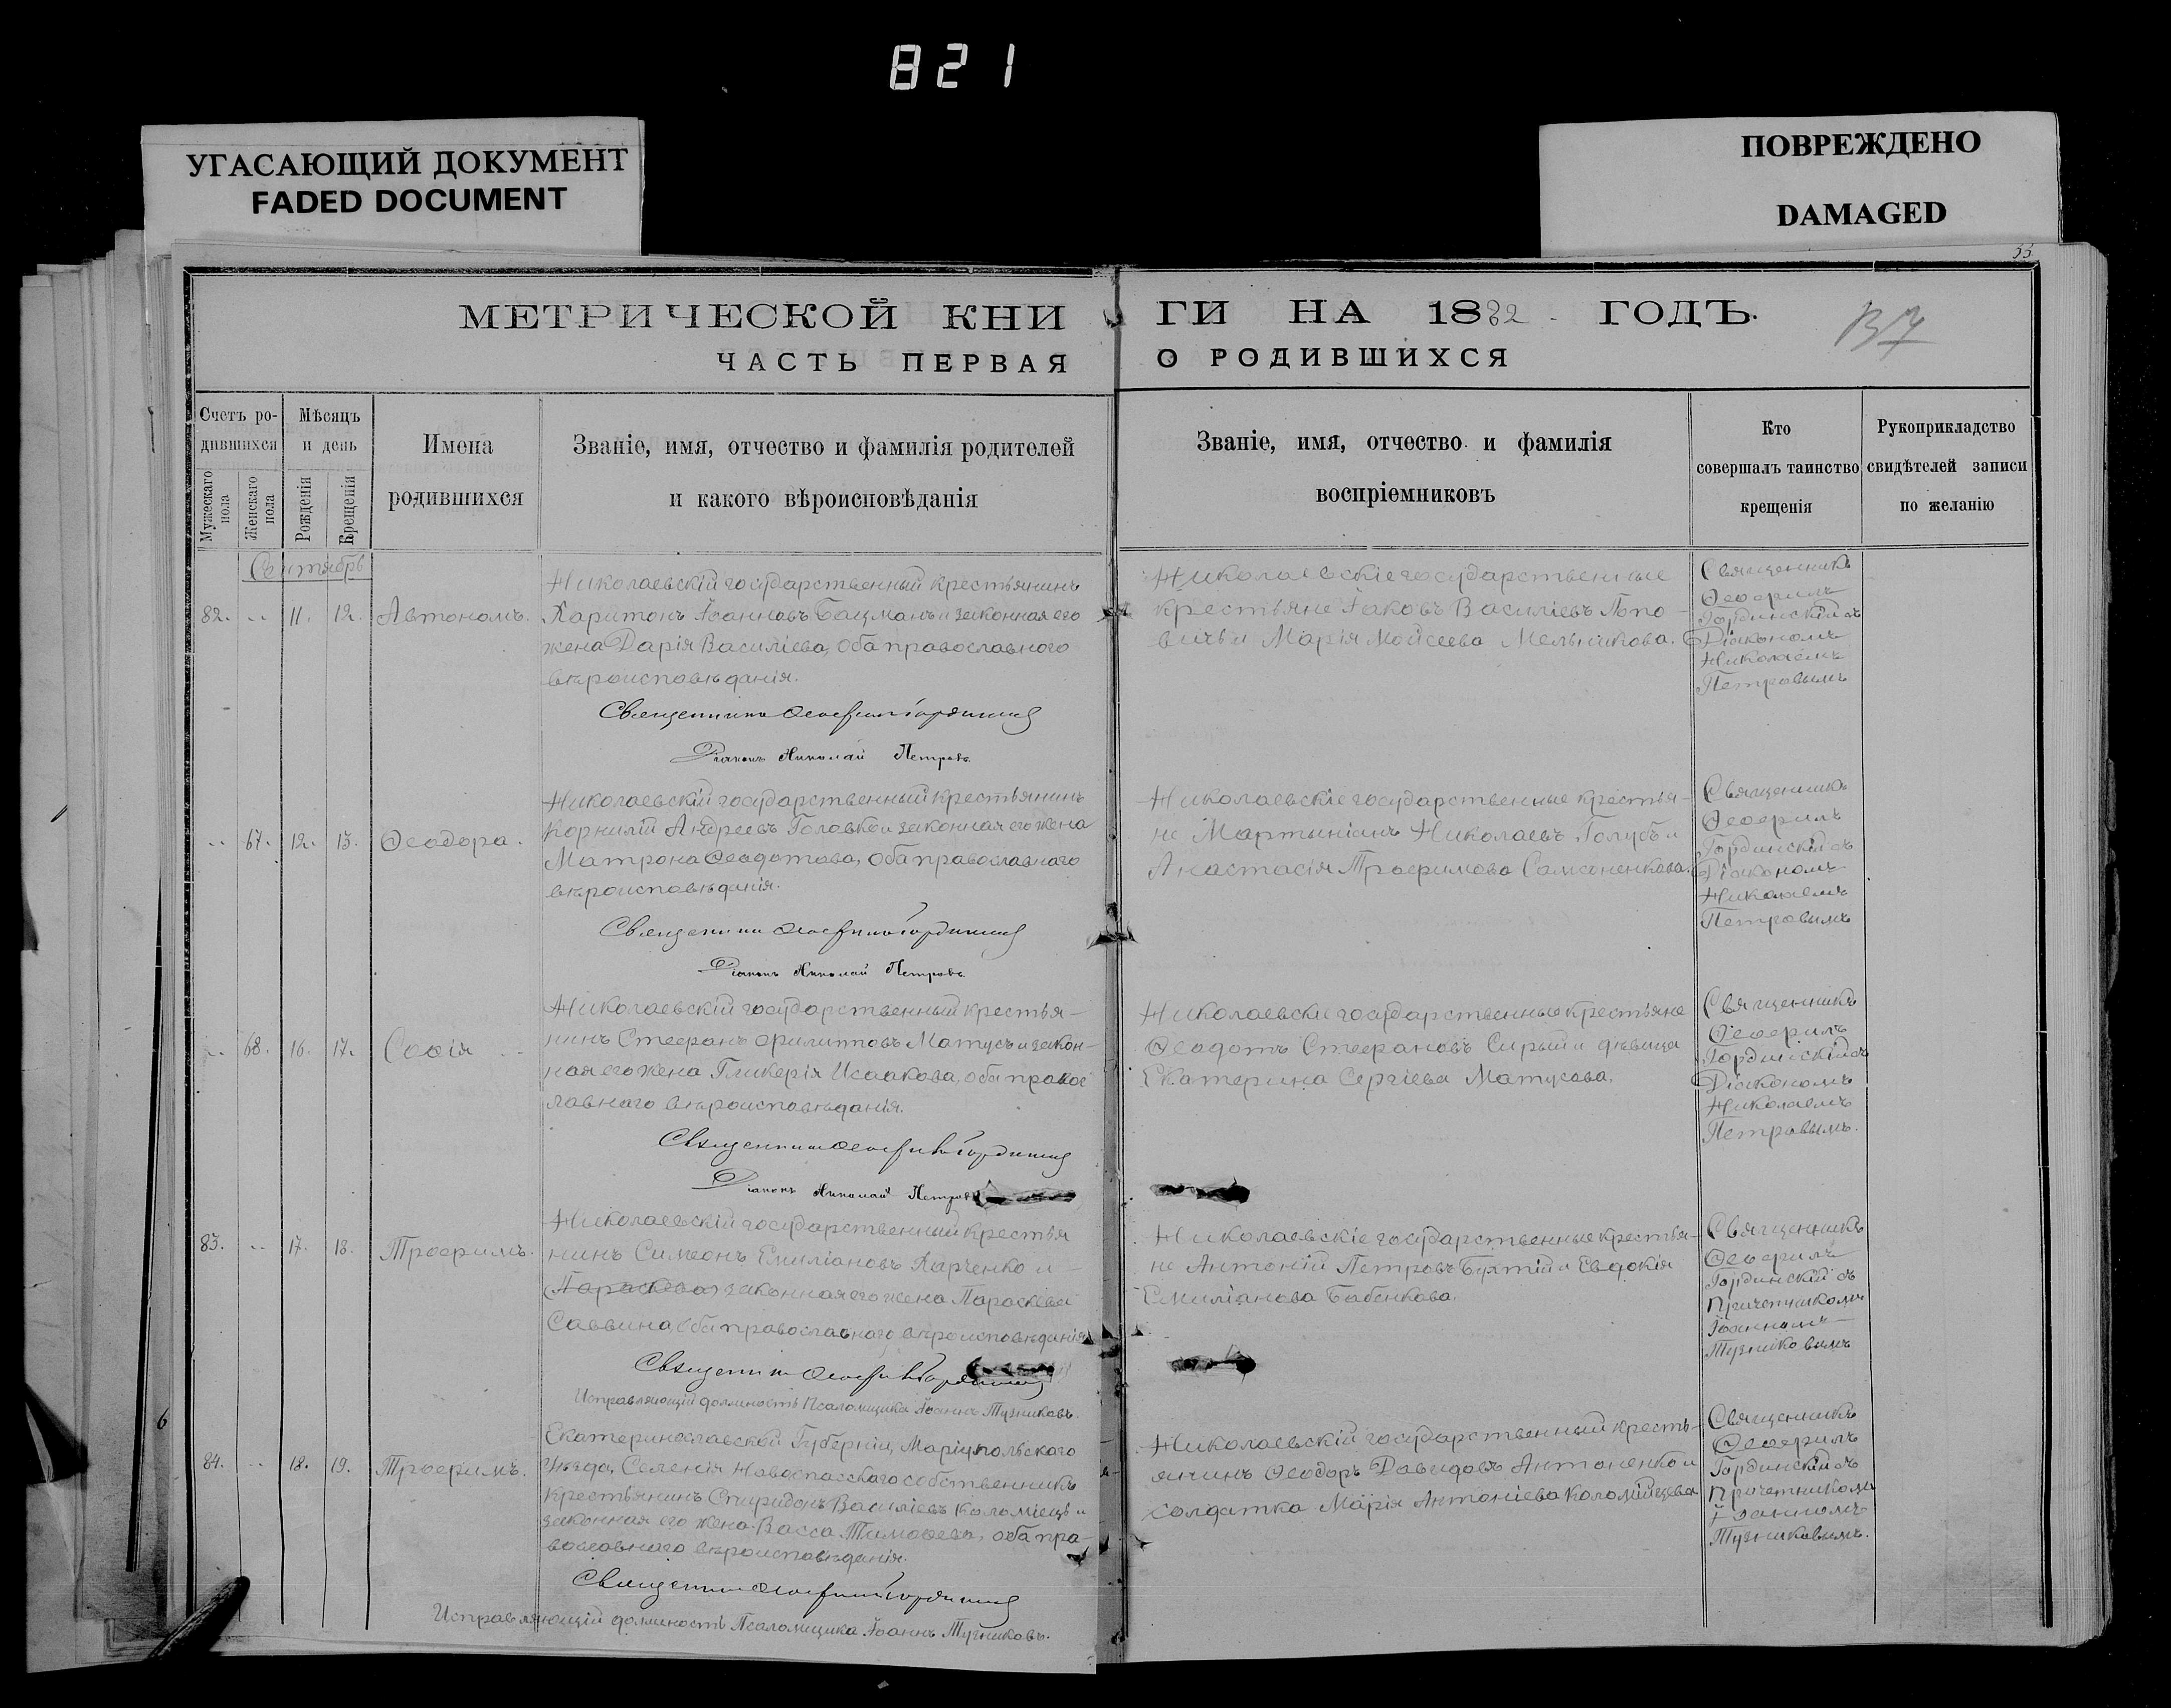 821
УГАСАЮЩИЙ ДОКУМЕНТ
FADED DOCUMENT
ПОВРЕЖДЕНО
DAMAGED
33
МЕТРИЧЕСКОЙ КНИ
ГИ НА 1882 ГОДЪ.
ЧАСТЬ ПЕРВАЯ
О РОДИВШИХСЯ
Счетъ ро-
дившихся
Мужескаго пола
Женскаго пола
Мѣсяцъ
и день
Рожденія
Крещенія
Имена
родившихся
Званіе, имя, отчество и фамилія родителей
и какого вѣроисповѣданія
Званіе, имя, отчество и фамилія
воспріемниковъ
Кто
совершалъ таинство
крещенія
Рукоприкладство
свидѣтелей записи
по желанію
Сентябрь
82. -- 11. 12. Автономъ.
Николаевскій государственный крестьянинъ
Харитонъ Іоанновъ Бацманъ и законная его
жена Дарія Василіева, оба православнаго
вѣроисповѣданія.
Священникъ Ѳеофилъ Гординскій
Діаконъ Николай Петровъ.
Николаевскіе государственные
крестьяне Іаковъ Василіевъ Попо-
вичъ и Марія Мойсеева Мельникова.
Священникъ
Ѳеофилъ
Гординскій съ
Діакономъ
Николаемъ
Петровымъ
-- 67. 12. 13. Ѳеодора.
Николаевскій государственный крестьянинъ
Корнилій Андреевъ Головко и законная его жена
Матрона Ѳеодотова, оба православнаго
вѣроисповѣданія.
Священникъ Ѳеофилъ Гординскій
Діаконъ Николай Петровъ.
Николаевскіе государственные крестья-
не Мартиніанъ Николаевъ Голубъ и
Анастасія Трофимова Самсоненкова.
Священникъ
Ѳеофилъ
Гординскій съ
Діакономъ
Николаемъ
Петровымъ
-- 68. 16. 17. Софія
Николаевскій государственный крестья-
нинъ Стефанъ Филипповъ Матусъ и закон-
ная его жена Гликерія Исаакова, оба правос
лавнаго вѣроисповѣданія.
Священникъ Ѳеофилъ Гординскій
Діаконъ Николай Петровъ
Николаевскіе государственные крестьяне
Ѳеодотъ Стефановъ Сирый и дѣвица
Екатерина Сергіева Матусова.
Священникъ
Ѳеофилъ
Гординскій съ
Діакономъ
Николаемъ
Петровымъ.
83. -- 17. 18. Трофимъ.
Николаевскій государственный крестья
нинъ Симеонъ Емиліановъ Харченко и
(Параскева) законная его жена Параскева
Саввина, оба православнаго вѣроисповѣданія
Священникъ Ѳеофилъ Гординскій
Исправляющій должность Псаломщика Іоаннъ Тузниковъ.
Николаевскіе государственные крестья-
не Антоній Петровъ Бухтій и Евдокія
Емиліанова Бабенкова.
Священникъ
Ѳеофилъ
Гординскій съ
Причетникомъ
Іоанномъ
Тузниковымъ
84. -- 18. 19. Трофимъ.
Екатеринославской Губерніи, Маріупольскаго
Уѣзда, Селенія Новоспасскаго собственникъ
крестьянинъ Спиридонъ Василіевъ Коломіецъ и
законная его жена Васса Тимофеева, оба пра-
вославнаго вѣроисповѣданія.
Священникъ Ѳеофилъ Гординскій
Исправляющій должность Псаломщика Іоаннъ Тузниковъ.
Николаевскій государственный кресть-
янинъ Ѳеодоръ Давидовъ Антоненко и
солдатка Марія Антоніева Коломійцева
Священникъ
Ѳеофилъ
Гординскій съ
Причетникомъ
Іоанномъ
Тузниковымъ.